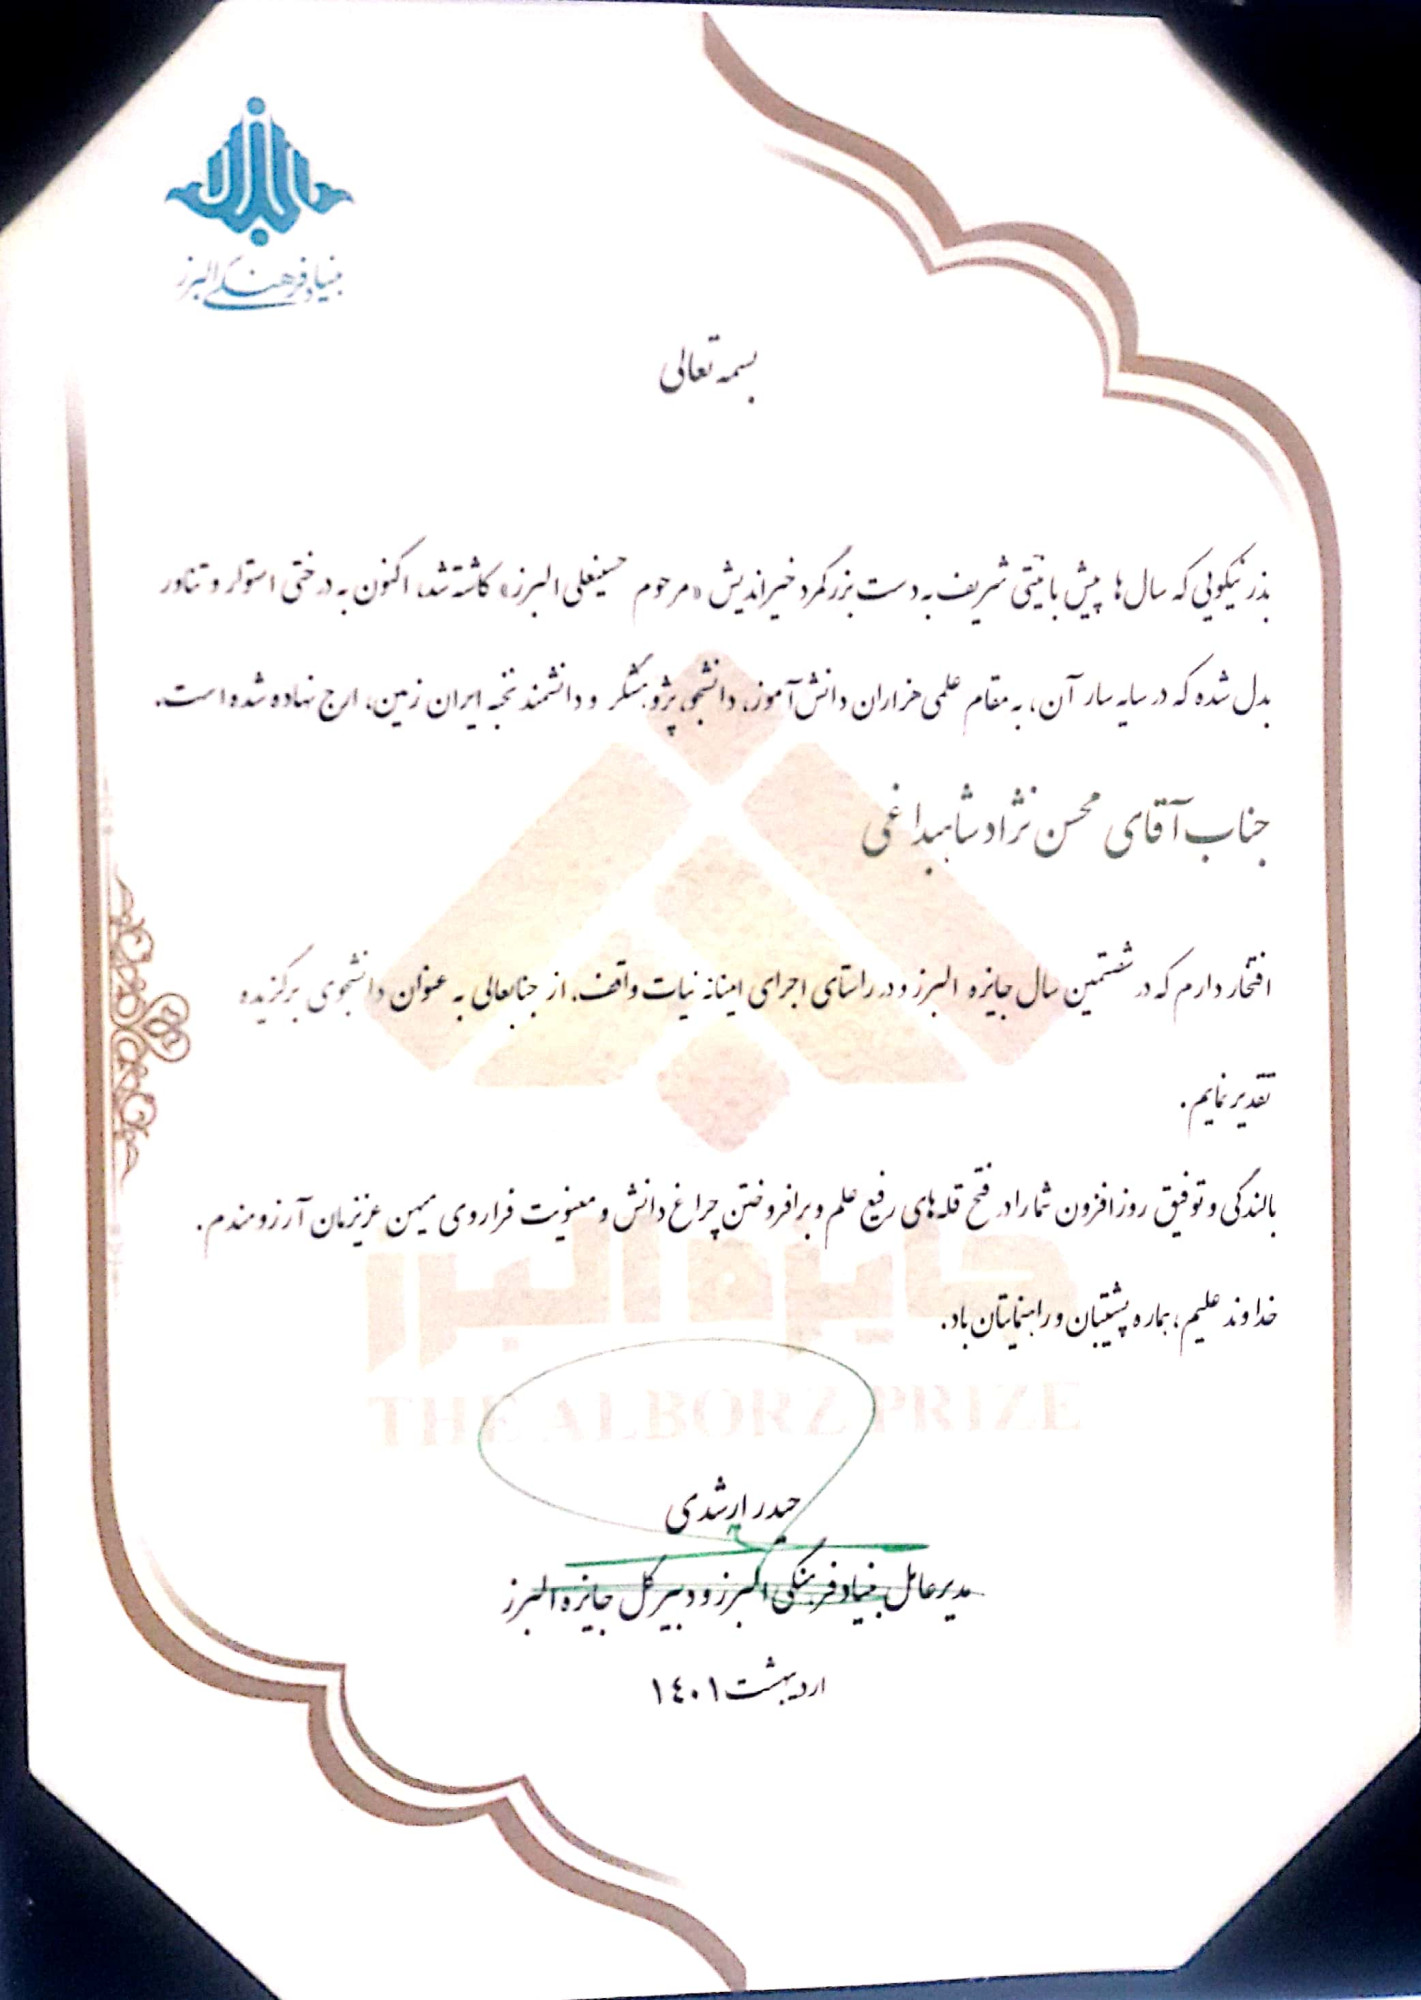 بنیاد فرهنگی البرز
بسمه تعالی
بذر نیکویی که سال‌ها پیش با نیتی شریف به دست بزرگمرد خیراندیش «مرحوم حسینعلی البرز» کاشته شد، اکنون به درختی استوار و تناور
بدل شده که در سایه سار آن، به مقام علمی هزاران دانش‌آموز، دانشجو، پژوهشگر و دانشمند نخبه ایران زمین، ارج نهاده شده است.
جناب آقای محسن نژاد شاهبداغی
افتخار دارم که در شصتمین سال جایزه البرز و در راستای اجرای امینانه نیات واقف، از جنابعالی به عنوان دانشجوی برگزیده
تقدیر نمایم.
بالندگی و توفیق روزافزون شما را در فتح قله‌های رفیع علم و برافروختن چراغ دانش و معنویت فراروی میهن عزیزمان آرزومندم.
خداوند علیم، هماره پشتیبان و راهنمایتان باد.
جایزه البرز
THE ALBORZ PRIZE
حیدر ارشدی
مدیرعامل بنیاد فرهنگی البرز و دبیر کل جایزه البرز
اردیبهشت ۱۴۰۱